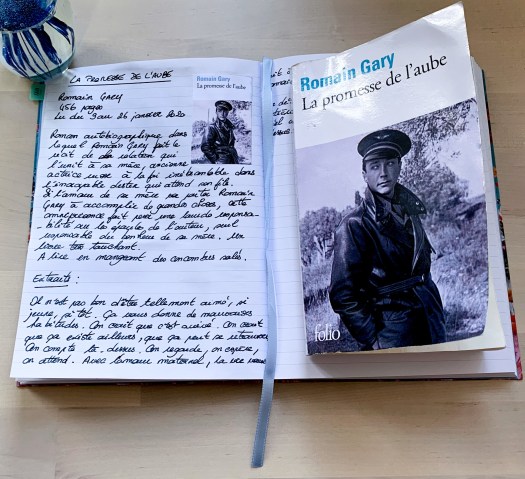 LA PROMESSE DE L'AUBE
Romain GARY
456 pages
Lu du 9 au 26 janvier 2020
Roman autobiographique dans
lequel Romain Gary fait le
récit de la relation qui
l'unit à sa mère, ancienne
actrice russe à la foi inébranlable dans
l'incroyable destin qui attend son fils.
Si l'amour de sa mère va porter Romain
Gary à accomplir de grandes choses, cette
omniprésence fait peser une lourde responsa-
bilité sur les épaules de l'auteur, seul
responsable du bonheur de sa mère. Un
livre très touchant.
A lire en mangeant des concombres salés.
Extraits :
Il n'est pas bon d'être tellement aimé, si
jeune, si tôt. Ça vous donne de mauvaises
habitudes. On croit que c'est arrivé. On croit
que ça existe ailleurs, que ça peut se retrouver.
On compte là-dessus. On regarde, on espère,
on attend. Avec l'amour maternel, la vie vous
Romain Gary
La promesse de l'aube
Romain Gary
La promesse de l'aube
folio